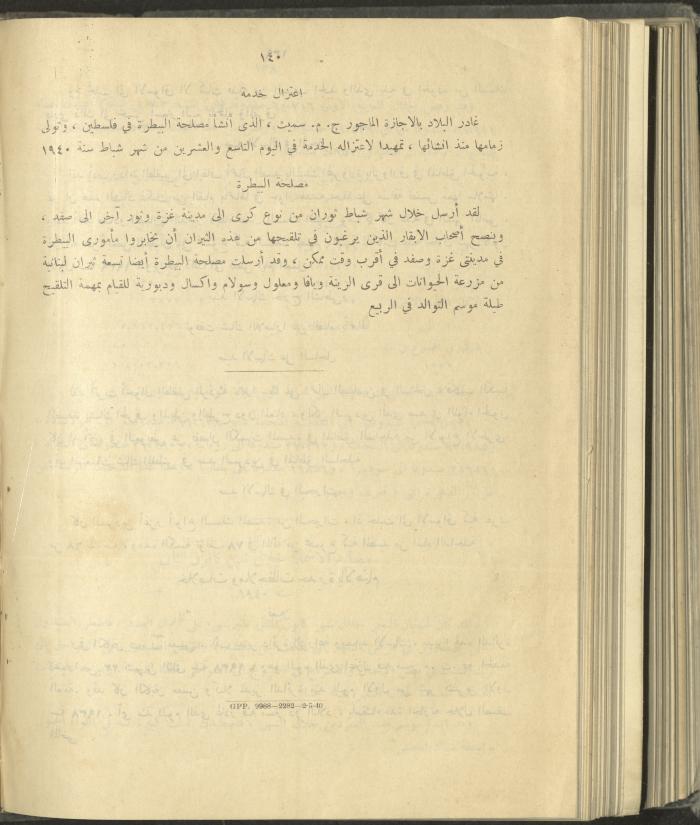 ١٤٠
اعتزال خدمة
غادر البلاد بالاجازة الماجور ج. م. سميث ، الذى أنشأ مصلحة البيطرة في فلسطين ، وتولى
زمامها منذ انشائها ، تمهيدا لاعتزاله الخدمة في اليوم التاسع والعشرين من شهر شباط سنة ١٩٤٠
مصلحة البيطرة
لقد أرسل خلال شهر شباط ثوران من نوع كرى الى مدينة غزة وثور آخر الى صفد ،
وينصح أصحاب الابقار الذين يرغبون في تلقيحها من هذه الثيران أن يخابروا مأمورى البيطرة
في مدينتى غزة وصفد في أقرب وقت ممكن ، وقد أرسلت مصلحة البيطرة أيضا تسعة ثيران لبنانية
من مزرعة الحيوانات الى قرى الرينة ويافا ومعلول وسولام واكسال ودبورية للقيام بمهمة التلقيح
طيلة موسم التوالد في الربيع
GPP. 9968—2282—2-5-40